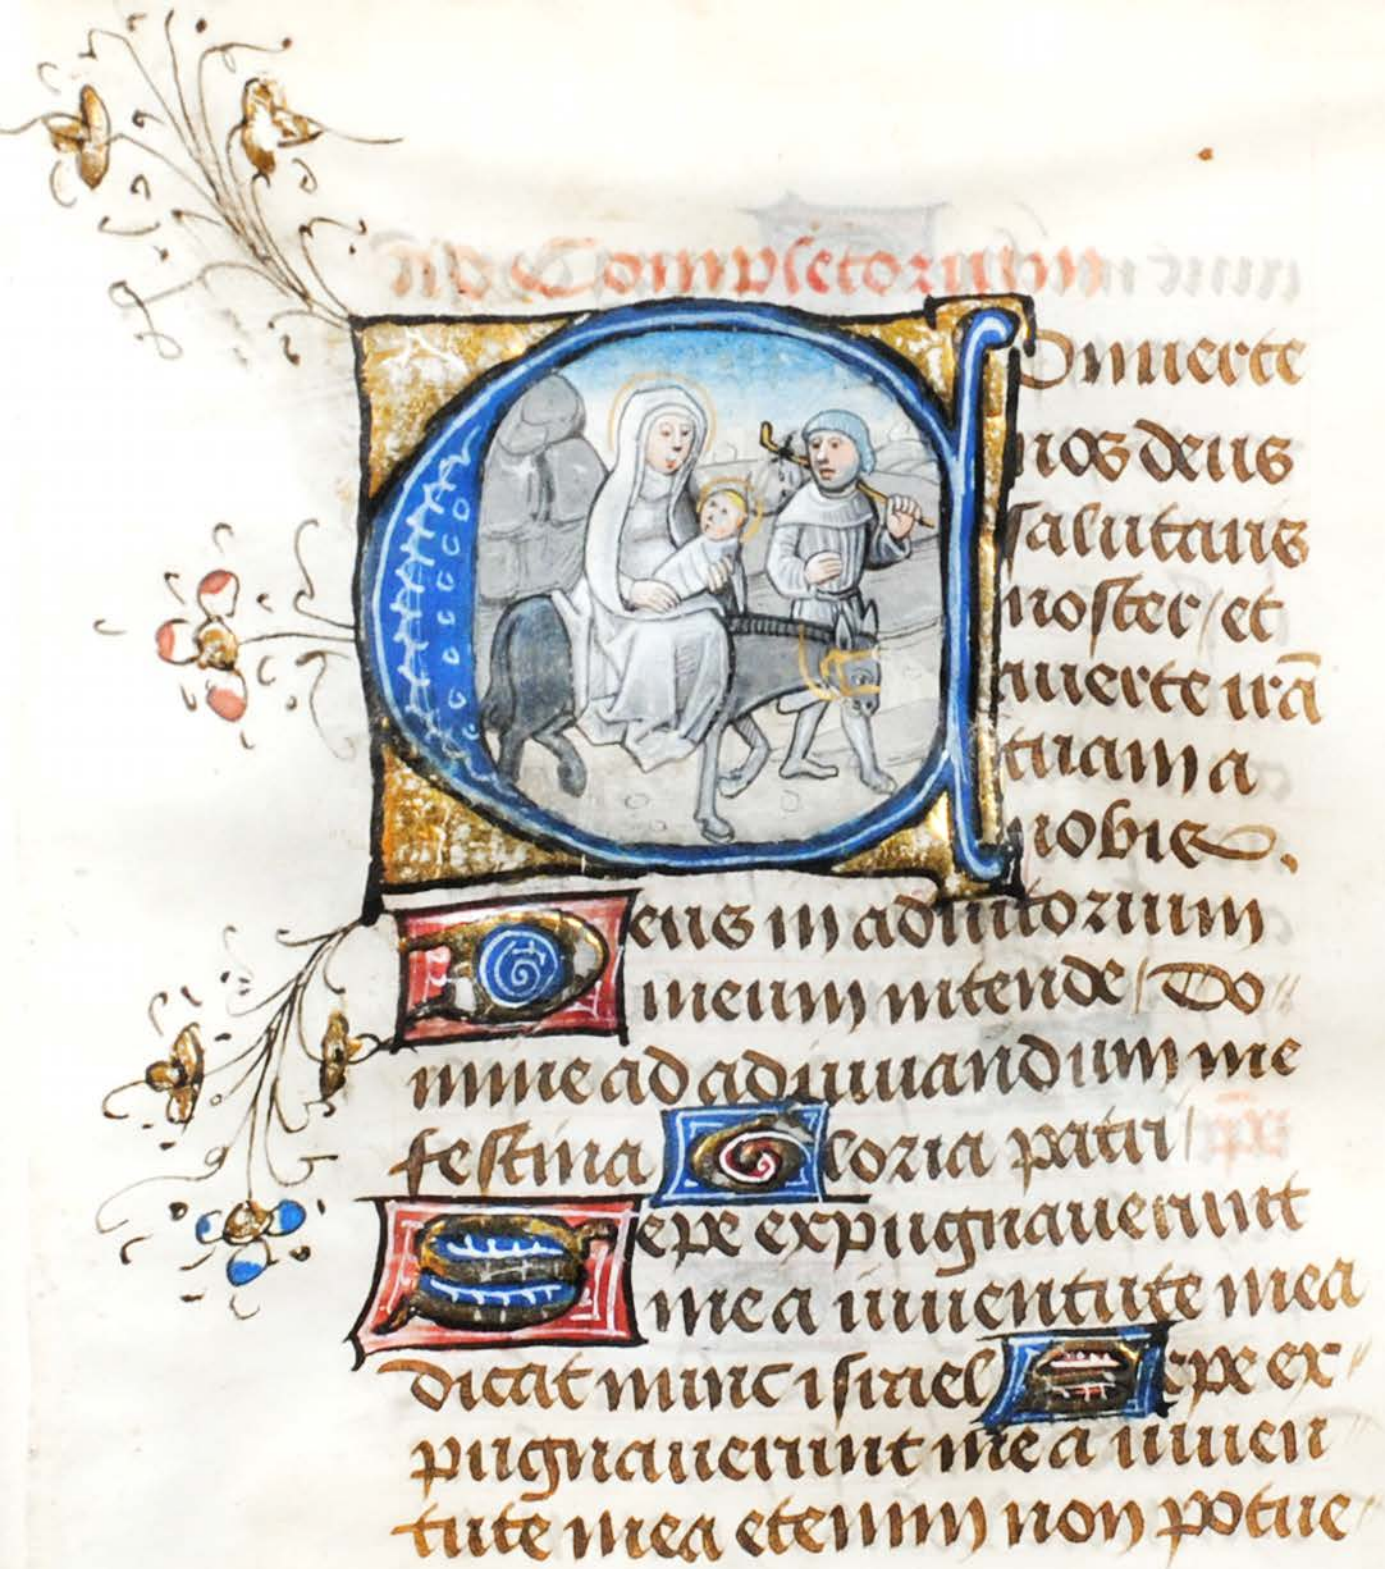 Ad Completorium
Conuerte
nos deus
salutaris
noster / et
auerte irā
tuam a
nobis.
Deus in adiutorium
meum intende / Do
mine ad adiuuandum me
festina Gloria patri /
Sepe expugnauerunt
me a iuuentute mea
dicat nunc israel Sepe ex
pugnauerunt me a iuuen
tute mea etenim non potue